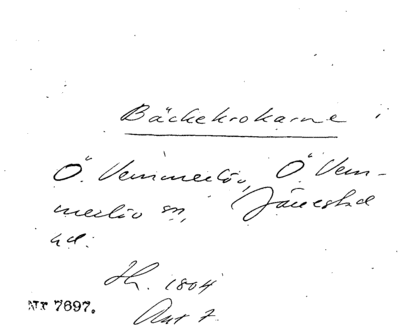 Bäckekrokarne
Ö. Vemmerlöv, Ö. Vem-
merlöv sn, Järrestad
hd.
Sk. 1804
Akt 7.
Nr 7697.